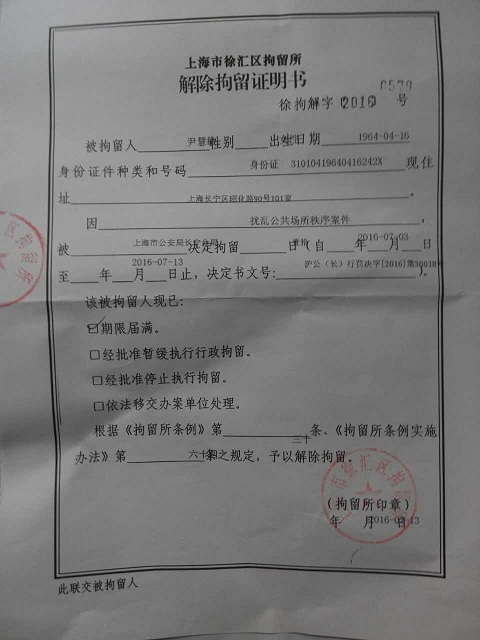 上海市徐汇区拘留所
解除拘留证明书
徐拘解字 2016 0570 号
被拘留人 尹慧敏 性别 出生日期 1964-04-16
身份证件种类和号码 身份证 31010419640416242X 现住
址 上海长宁区昭化路90号101室
因 扰乱公共场所秩序案件 ,
被 上海市公安局长宁分局 决定拘留 日(自 2016-07-03 年 月 日
至 2016-07-13 年 月 日止,决定书文号: 沪公(长)行罚决字[2016]第 )。
该被拘留人现已:
☑期限届满。
□经批准暂缓执行行政拘留。
□经批准停止执行拘留。
□依法移交办案单位处理。
根据《拘留所条例》第 三十 条、《拘留所条例实施
办法》第 六十 条之规定,予以解除拘留。
(拘留所印章)
年 月 日 2016-07-13
此联交被拘留人